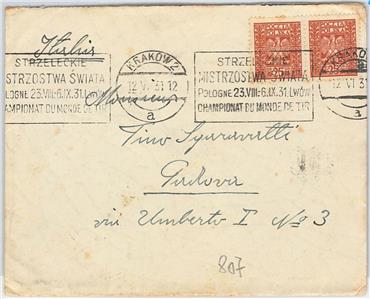 Italia
POCZTA
POLSKA
POCZTA
POLSKA
STRZELECKIE
MISTRZOSTWA ŚWIATA
POLOGNE 23.VIII-6.IX.31. LWÓW
CHAMPIONAT DU MONDE DE TIR
KRAKÓW 2
12 VI 31 12
a
STRZELECKIE
MISTRZOSTWA ŚWIATA
POLOGNE 23.VIII-6.IX.31. LWÓW
CHAMPIONAT DU MONDE DE TIR
KRAKÓW
12 VI 31
a
Monsieur
Tino Sgaravatti
Padova
via Umberto I No 3
807